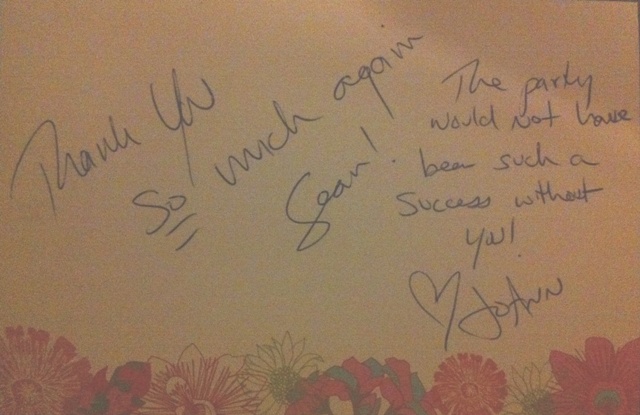 Thank You
So much again
Sean!
The party
would not have
been such a
success without
you!
♡ JoAnn